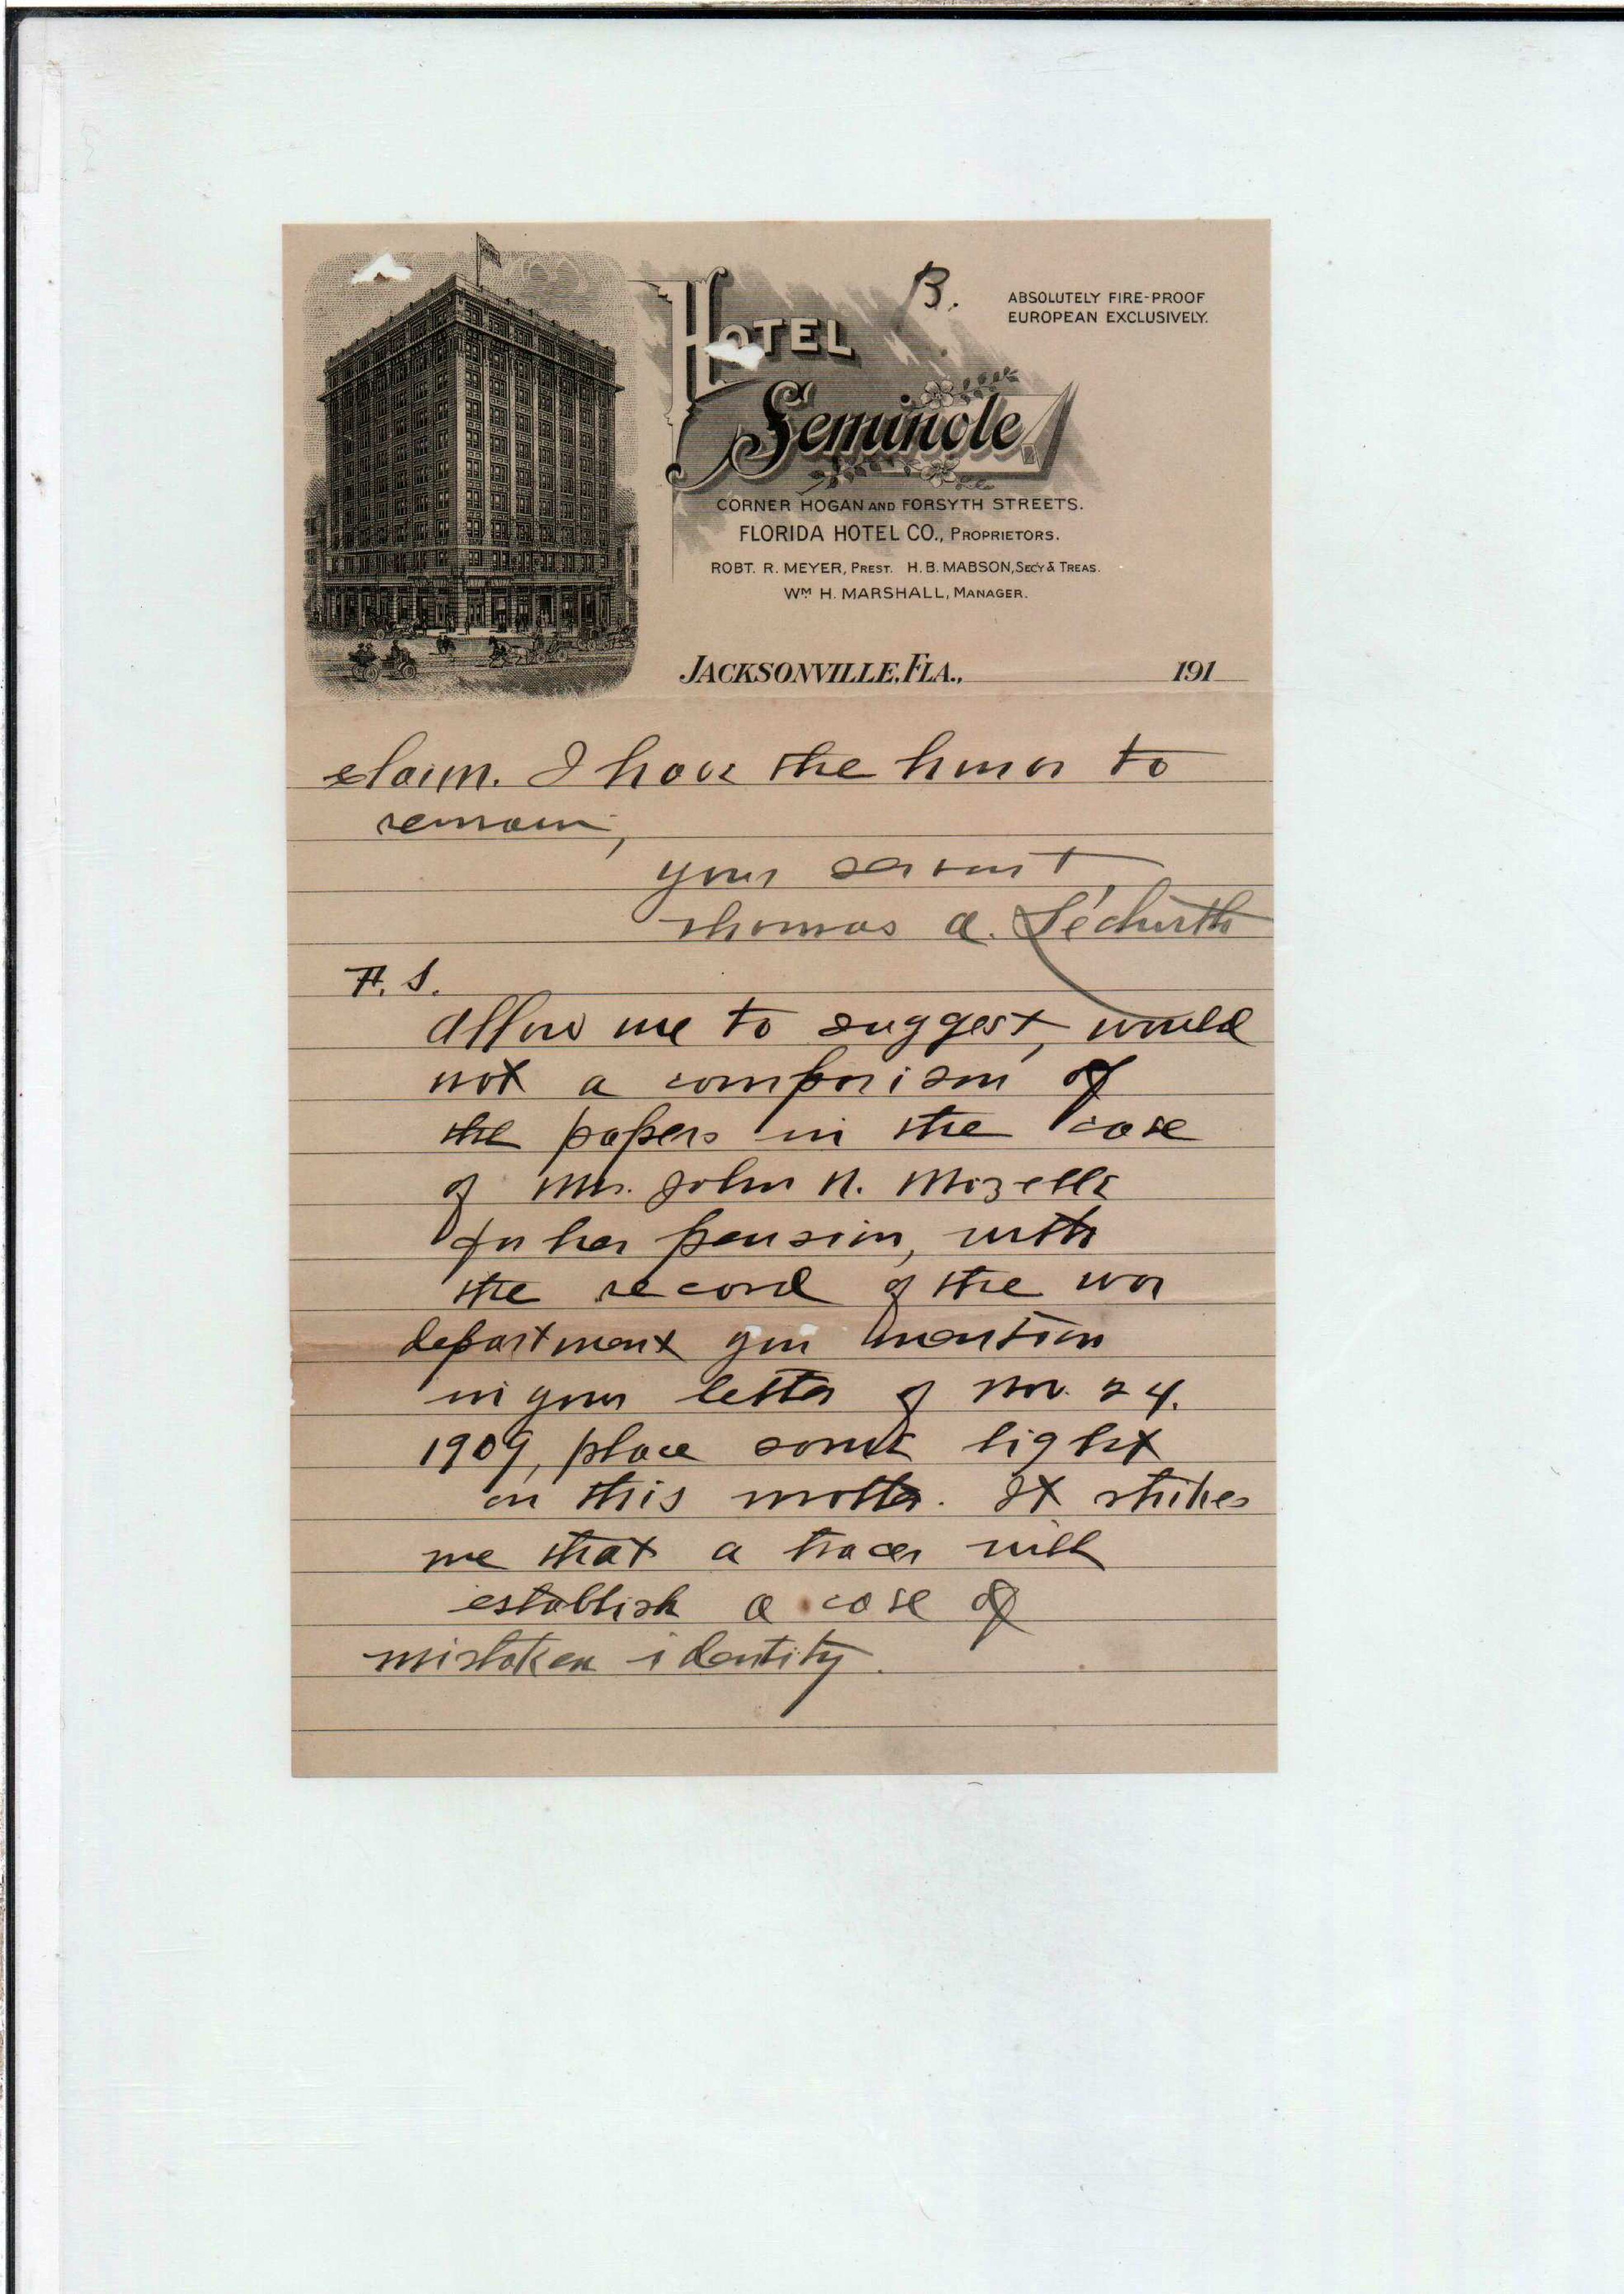 B.
ABSOLUTELY FIRE-PROOF
EUROPEAN EXCLUSIVELY.
HOTEL
Seminole
CORNER HOGAN AND FORSYTH STREETS.
FLORIDA HOTEL CO., PROPRIETORS.
ROBT. R. MEYER, PREST. H. B. MABSON, SECY & TREAS.
WM H. MARSHALL, MANAGER.
JACKSONVILLE, FLA., 191
claim. I have the honor to
remain,
your servant
Thomas A.
P. S.
Allow me to suggest, would
not a comparison of
the papers in the case
of Mrs. John N. Mizelle
for her pension, with
the record of the war
department you mention
in your letter of Nov. 24.
1909, place some light
on this matter. It strikes
me that a tracer will
establish a case of
mistaken identity.